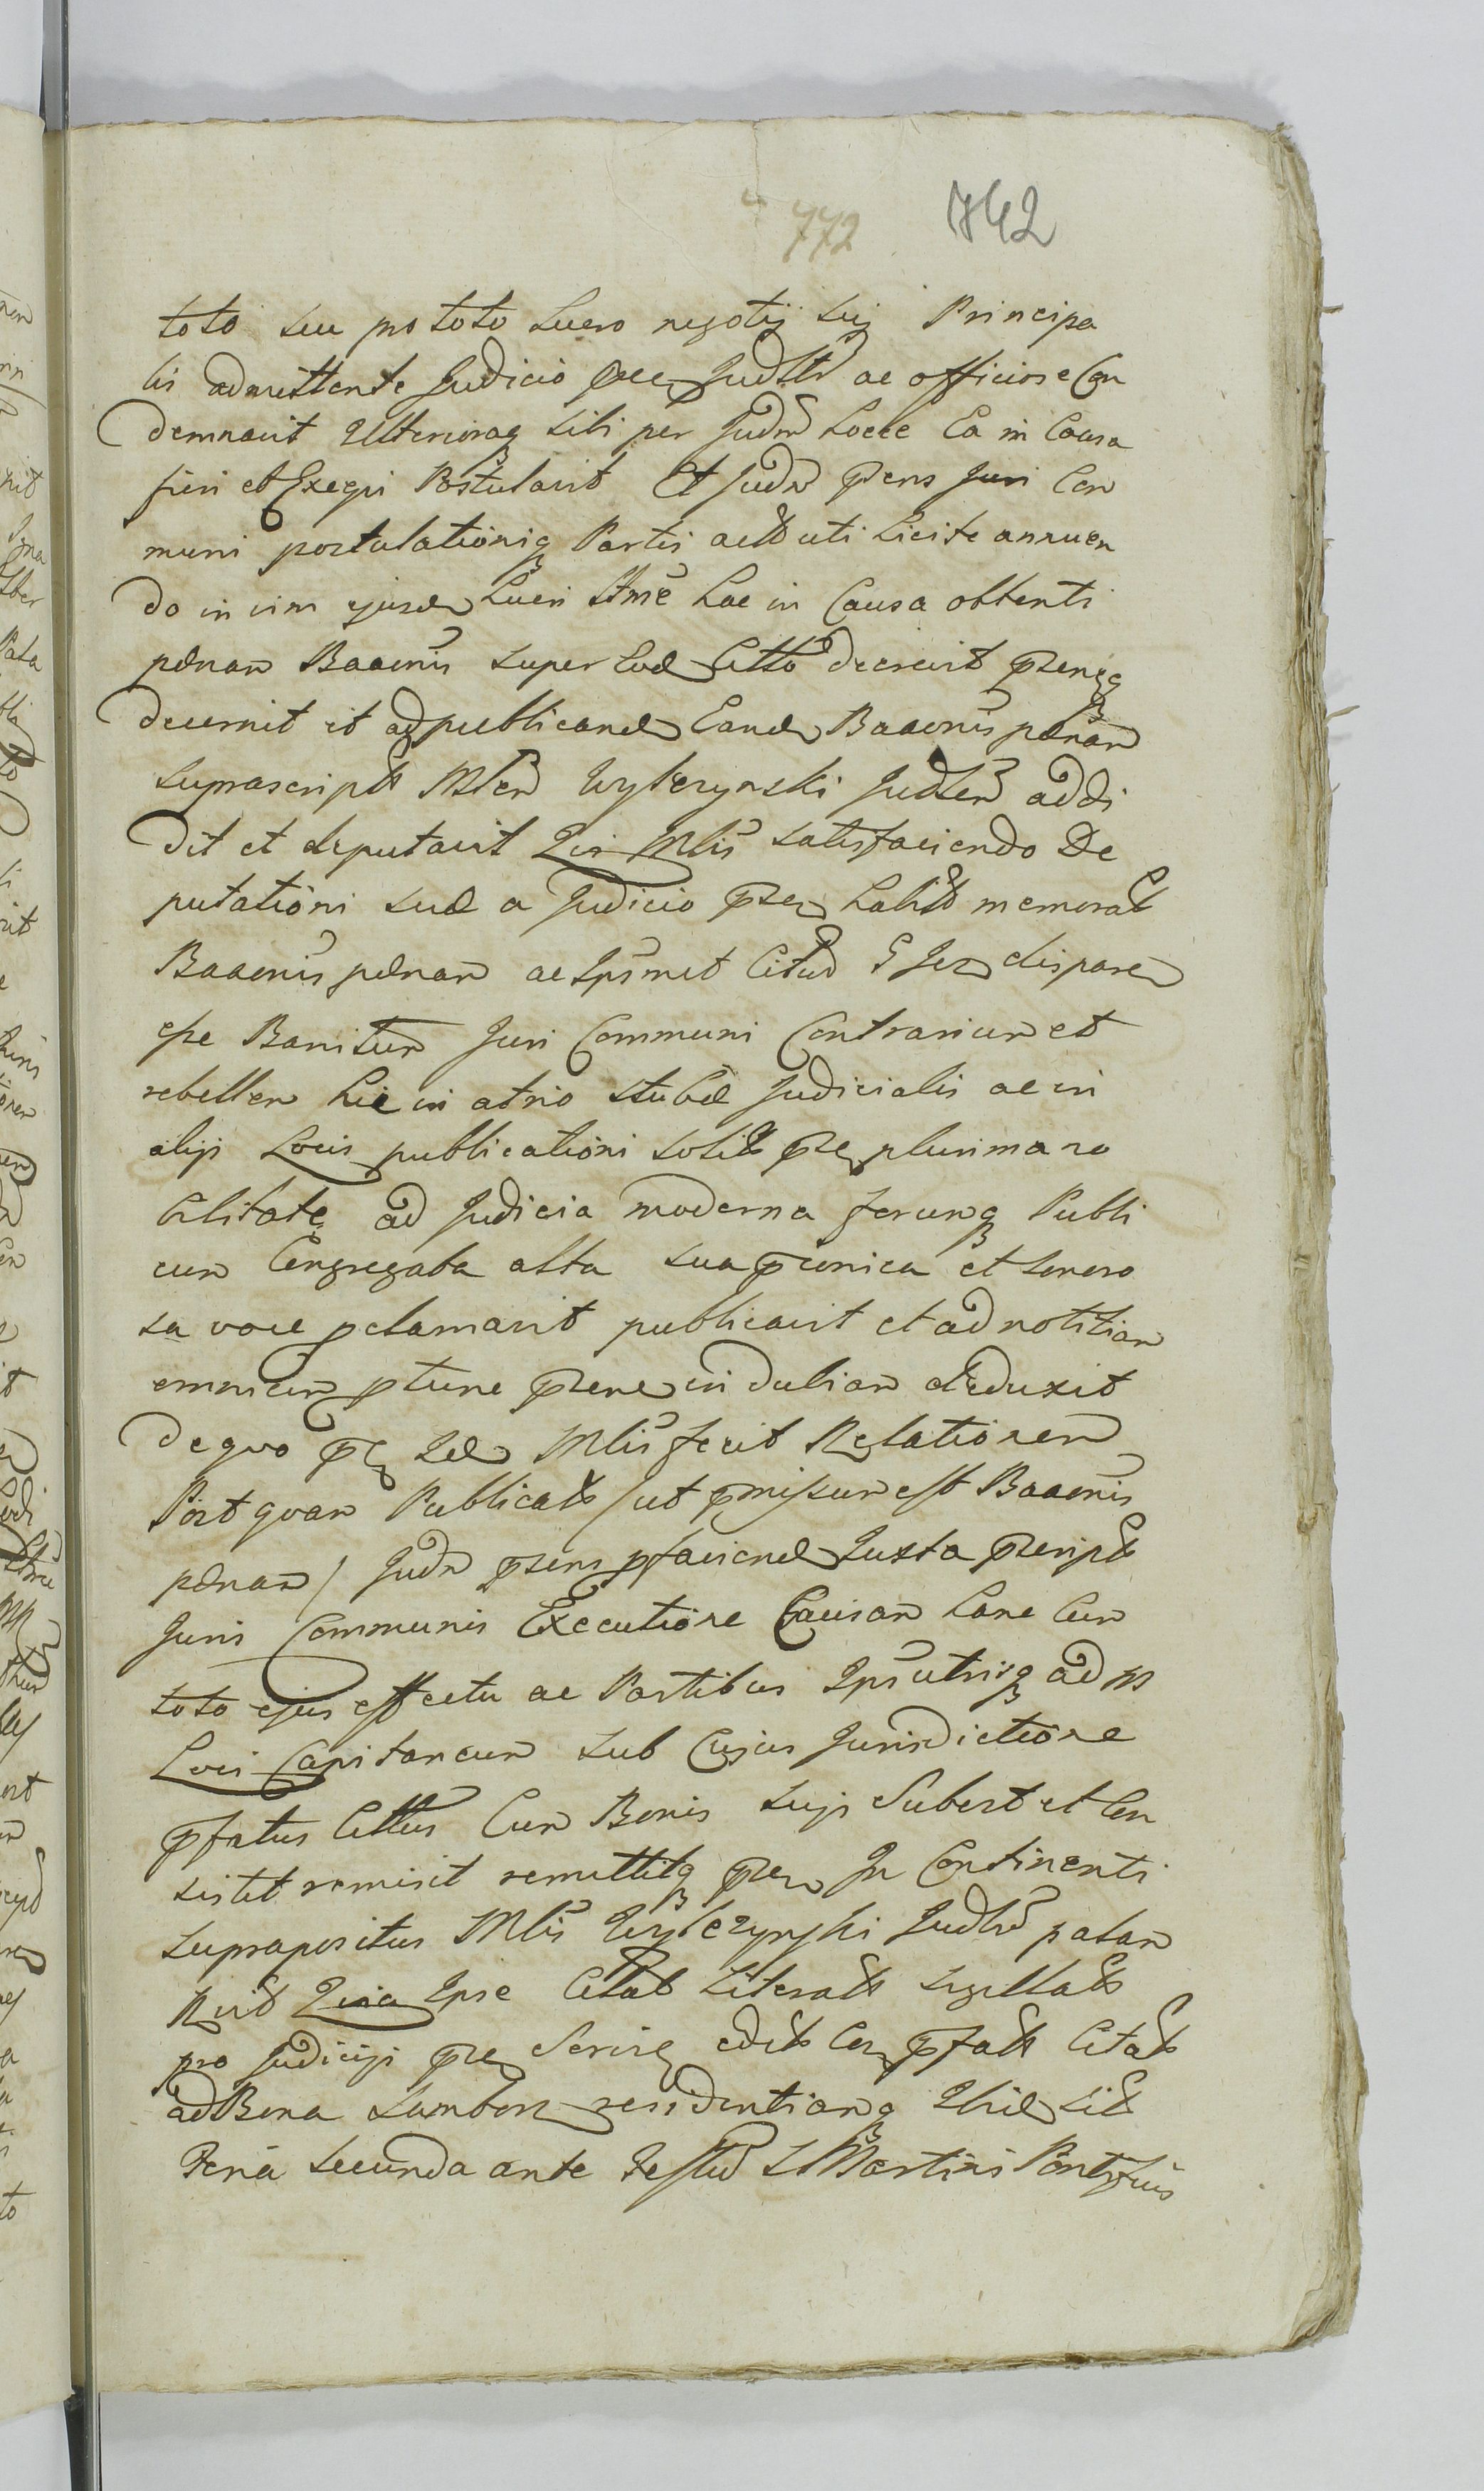 772 742
toto seu pro toto Lucro negotij sui Principa
lis admittente Judicio pnte Judltr ac officiose Con
demnavit Ulterioraq sibi per Judm hocce Ea in Causa
fieri et Exequi Postulavit Et Judm Pens Juri Com
muni postulationiq Partis actt uti Licite annuen
do in vim ejusd Lucri Ame hac in Causa obtenti
pænam Baaonis super Eod Citto decrevit Pensq
decernit et ad publicand Eand Baaonis pænam
Suprascript Mlem Wylezynski Judlem addi
dit et deputavit Qui Mlis satisfaciendo De
putationi suæ a Judicio Pen habit memorat
Baaonis pænam ac Ipsmet Citum disparen
esse Banitum Juri Communi Contrarium et
rebellem hic in atrio stubæ Judicialis ac in
alijs Locis publicationi solit pte plurima no
bilitate ad Judicia moderna forumq Publi
cum Congregata alta sua pconica et sonoro
sa voce pclamavit publicavit et ad notitiam
omnium ptunc Pene in dubiam deduxit
de quo Id Mlis fecit Relationem
Post quam Publicat /ut pmissum est Baaonis
pænam/ Judm Pens pfaciend Juxta Pscript
Juris Communis Executione Causam hanc Cum
toto ejus effectu ac Partibus Ips utrisq ad M
Loci Capitaneum sub Cujus Jurisdictione
Pfatus Cittus Cum Bonis suis Subest et Con
sistit remisit remittitq Pen In Continenti
Suprapositus Mlis Wylezynski Judlr palam
Rcit Quia Ipse Citat Literatt sigillatt
pro Judicijs pte Serie edit Con Pfatt Citat
ad Bona Lambor residentiamq Ibid sit
Feria Secunda ante Festum S Martini Pontificis